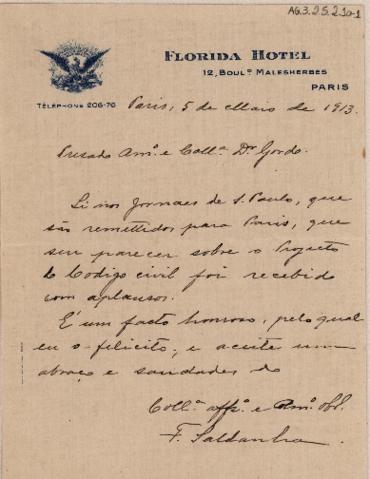 AG.3.2.5.2.30-1
FLORIDA HOTEL
12, BOULD MALESHERBES
PARIS
TÉLÉPHONE 206-70
Paris, 5 de Maio de 1913.
Presado Amº. e Collª. Dr. Gordo.
Li nos Jornaes de S. Paulo, que
são remettidos para Paris, que
seu parecer sobre o Projecto
do Codigo civil foi recebido
com aplausos.
É um facto honroso, pelo qual
eu o felicito, e aceite um
abraço e saudades do
Collª. affº. e Amº. obº.
F. Saldanha